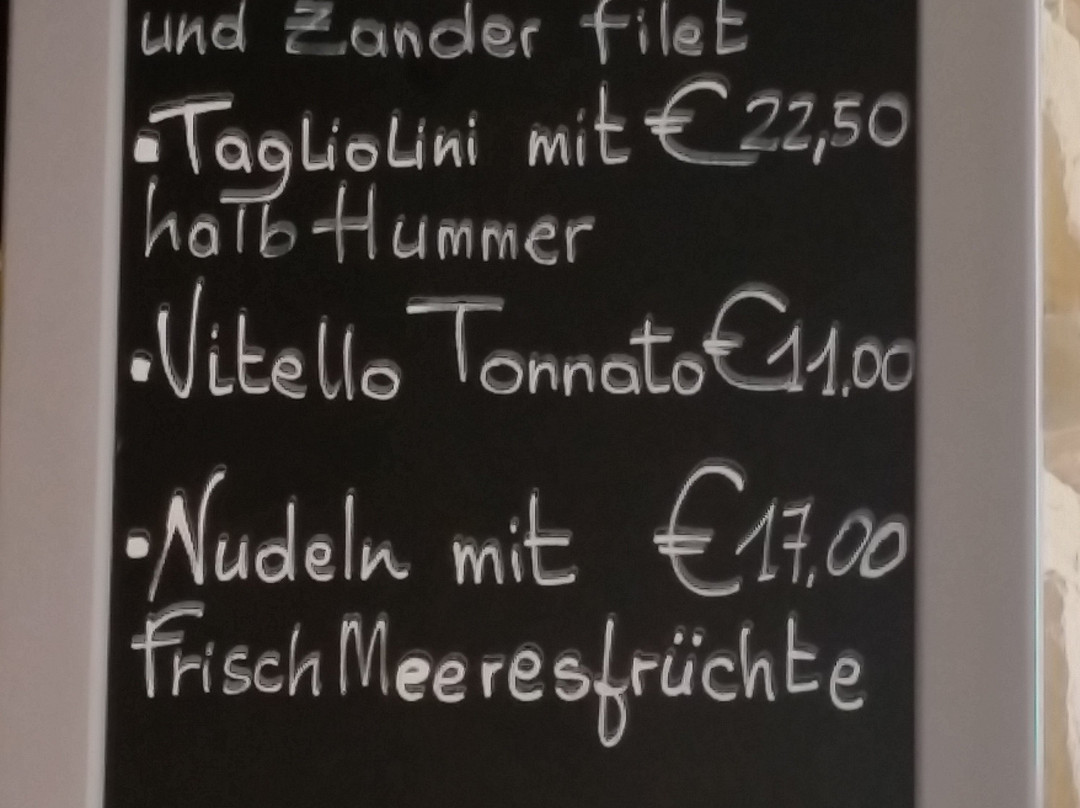 und Zander filet
▪Tagliolini mit €22,50
halb Hummer
▪Vitello Tonnato €11.00
▪Nudeln mit €17,00
frisch Meeresfrüchte